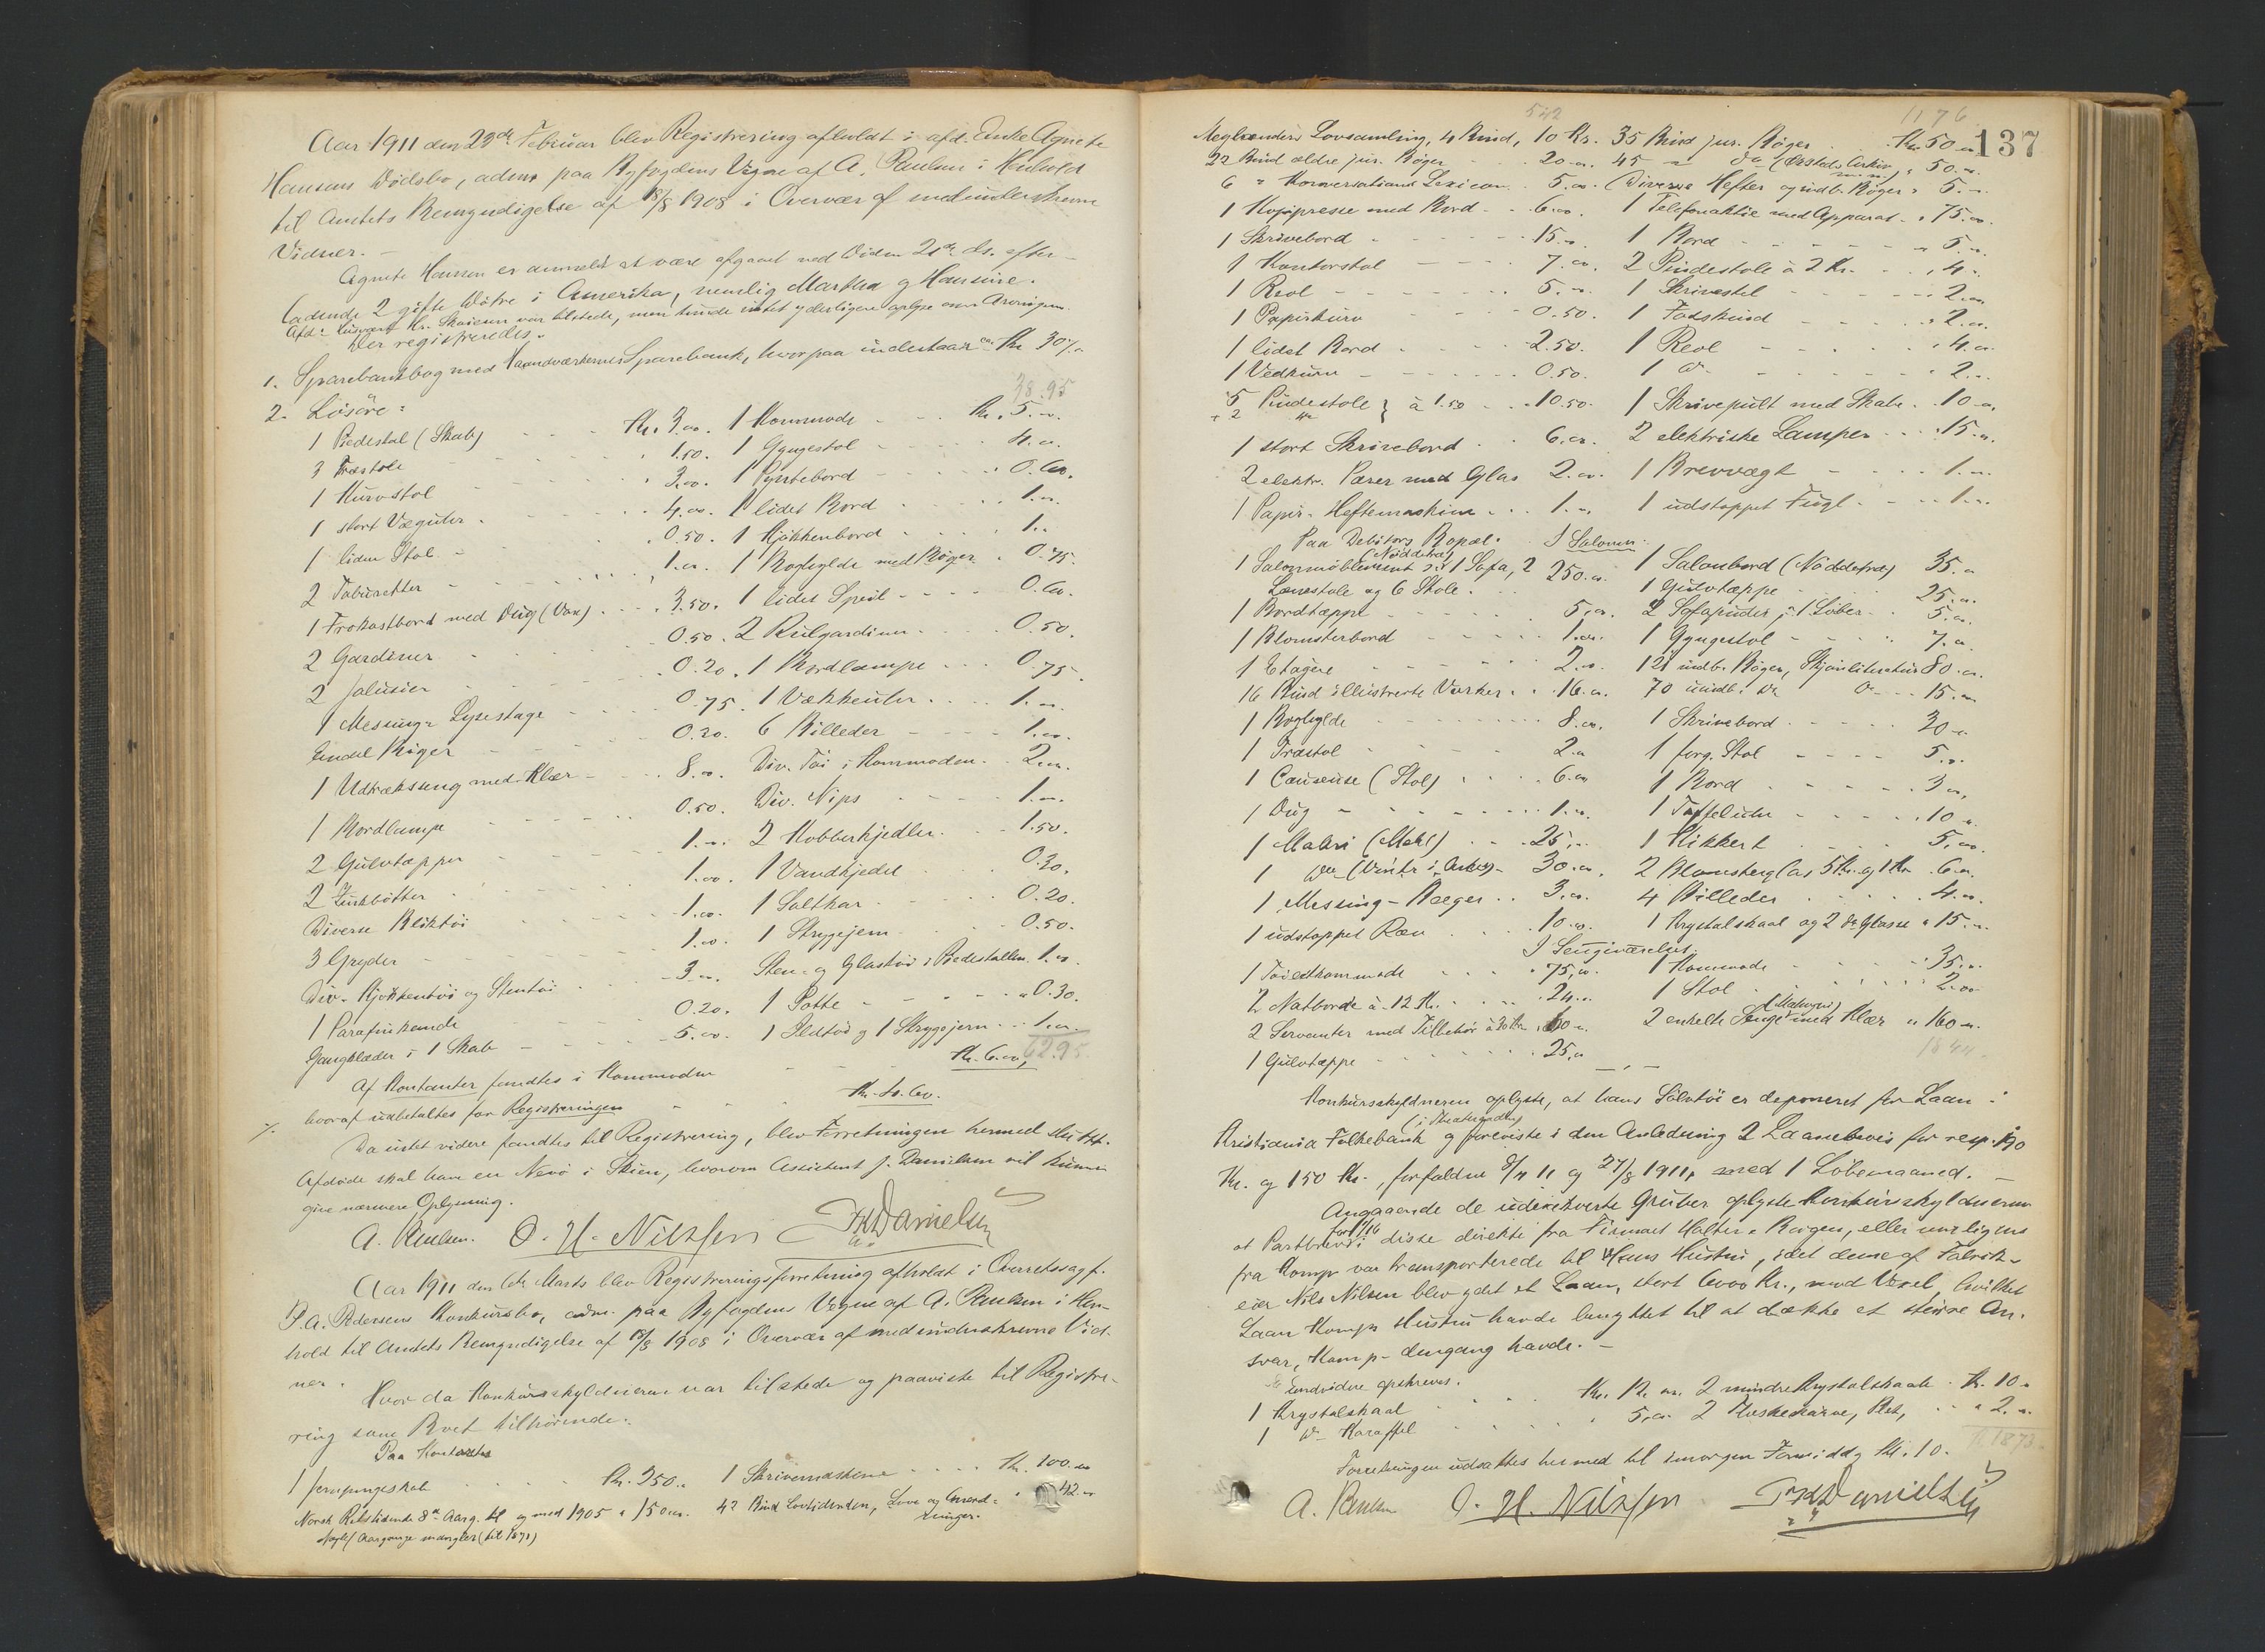 Aar 1911 den 23de Februar blev Registrering afholdt i afd. Enke Agnete
Hansens Dødsbo, adm. paa Byfogdens Vegne af A. Paulsen i Henhold
til Amtets Bemyndigelse af 18/8 1908 i Overvær af medunderskrevne
Vidner. –
Agnete Hansen er anmeldt at være afgaaet ved Døden 21de ds. efter-
ladende 2 gifte Døtre i Amerika, nemlig Martha og Hansine.
Afd.s Kr. var tilstede, men kunde intet yderligere oplyse om Arvingerne.
Der registreredes.
1. Sparebankbog med Haandværkernes Sparebank, hvorpaa indestaar ca. Kr. 30
38.95
2. Løsøre:
1 Piedestal (Skab) Kr. 3.00. 1 Kommode Kr. 5.00.
3 Træstole 1.50. 1 Gyngestol 4.00.
1 Kurvstol 3.00. 1 Pyntebord 0.60.
1 stort Væguhr 4.00. 1 lidet Bord 1.00.
1 liden Stol 0.50. 1 Kjøkkenbord 1.
2 Tabouretter 1.00. 1 Boghylde med Bøger 0.75.
1 Frokostbord med Dug (Vox) 3.50. 1 lidet Speil 0.60.
2 Gardiner 0.50. 2 Rulgardiner 0.50.
2 Jalusier 0.20. 1 Bordlampe 0.75.
1 Messing-Lysestage 0.75. 1 Vækkeuhr 1.
Endel Bøger 0.20. 6 Billeder 1.00.
1 Udtræksseng med Klær 8.00. Div. Tøi i Kommoden 2.00.
1 Bordlampe 0.50. Div. Nips 1.
2 Gulvtæpper 1. 2 Kobberkjedler 1.50.
2 Zinkbøtter 1.00. 1 Vandkjedel 0.30.
Diverse Bliktøi 1.00. 1 Saltkar 0.20.
3 Gryder 1.00. 1 Strygejern 0.50.
Div. Kjøkkentøi og Stentøi 3. Sten- og Glastøi i Piedestallen 1.00.
1 Parafinkande 0.20. 1 Potte 0.30.
Gangklæder i 1 Skab 5.00. 1 Ildtøi og 1 Strygejern 1.00.
62.95
Af Kontanter fandtes i Kommoden Kr. 6.00,
hvoraf udbetaltes for Registreringen
Da intet videre fandtes til Registrering, blev Forretningen hermed sluttet.
Afdøde skal have en Nevø i Skien, hvorom Assistent J. Danielsen vil kunne
give nærmere Oplysning.
A. Paulsen. O. H. Nilssen Danielsen
Aar 1911 den 6te Marts blev Registreringsforretning afholdt i Overretssagf.
P. A. Pedersens Konkursbo, adm. paa Byfogdens Vegne af A. Paulsen i Hen-
hold til Amtets Bemyndigelse af 18/8 1908 i Overvær af medunderskrevne Vid-
ner.
Hvor da Konkursskyldneren var tilstede og paaviste til Registre-
ring som Boet tilhørende:
Paa Kontoret
1 Jernpengeskab Kr. 350. 1 Skrivemaskine Kr. 100.00
Norsk Retstidende 8de Aarg. til og med 1905 150.00. 42 Bind Lovtidenden, Love og Anord- 42.00
Nogle Aargange mangler (til 1871) ninger.
542 1176
137
Meglænders Lovsamling, 4 Bind, 10 Kr. 35 Bind jur. Bøger Kr. 50
22 Bind ældre jur. Bøger 20.00. 45 do (Ørsteds Arkiv m.m.) 50.
6 " Konversations Lexicon 5.00. Diverse Hefter og indb. Bøger 5.
1 Kopipresse med Bord 6.00. 1 Telefonaktie med Apparat 75.00.
1 Skrivebord 15. 1 Bord 5.
1 Kontorstol 7.00. 2 Pindestole à 2 Kr. 4.
1 Reol 5. 1 Skrivestel 2.00
1 Papirkurv 0.50. 1 Fodskind 2.00.
1 lidet Bord 2.50. 1 Reol 4.00
1 Vedkurv 0.50. 1 do 2.
5 Pindestole } à 1.50 10.50. 1 Skrivepult med Skab 10
+ 2 do
1 stort Skrivebord 6.00. 2 elektriske Lamper 15.
2 elektr. Pærer med Glas 2.00. 1 Brevvægt 1.
1 Papir-Heftemaskine 1. 1 udstoppet Fugl 1.
Paa Debitors Bopæl. I Salonen:
1 Salonmøblement (Nøddetræ) 1 Sofa, 2 250.00 1 Salonbord (Nøddetræ) 35.
Lænestole og 6 Stole. 1 Gulvtæppe 25.
1 Bordtæppe 5.00. 2 Sofapuder, 1 Løber 5.00.
1 Blomsterbord 1.00. 1 Gyngestol 7.
1 Etagere 2. 121 indb. Bøger, Skjønliteratur 80.00.
16 Bind illustrerte Verker 16.00. 70 uindb. do do 15.
1 Boghylde 8.00. 1 Skrivebord 30
1 Træstol 2. 1 forg. Stol 5.
1 Causeuse (Stol) 6.00 1 Bord 3
1 Dug 1. 1 Taffeluhr 10
1 Maleri 25. 1 Kikkert 5.00.
1 do (Vinter i Asker) 30.00. 2 Blomsterglas 5 Kr. og 1 Kr. 6.00.
1 Messing-Bæger 3.00. 4 Billeder 4.
1 udstoppet Ræv 10.00. 1 Krystalskaal og 2 do Glasse 15.
I Sengeværelset.
1 Toiletkommode 75.00. 1 Kommode 35.
2 Natborde à 12 Kr. 24. 1 Stol 2.00
2 Servanter med Tilbehør à 30 Kr. 60. 2 enkelte Senge (Mahogni) med Klær 160.
1 Gulvtæppe 25.
1844
Konkursskyldneren oplyste, at hans Sølvtøi er deponeret for Laan i
Kristiania Folkebank (i Theatergaden) og foreviste i den Anledning 2 Laanebevis for resp. 190
Kr. og 150 Kr., forfaldne 11 og 27/8 1911, med 1 Løbemaaned. –
Angaaende de udenbys Gruber oplyste Konkursskyldneren
at Partbrev i disse direkte fra Firmaet Halter Borgen, eller muligens
fra Komp. var transporterede til Hans Hustru, idet denne af Fabrik-
eier Nils Nilsen blev ydet et Laan, stort 6000 Kr., mod Vexel, hvilket
Laan Komp. Hustru havde benyttet til at dække et større An-
svar, Komp. dengang havde. –
endvidere opskreves.
1 Krystalskaal Kr. 12 2 mindre Krystalskaale Kr. 10.
1 do Karaffel 5.00 2 Kurve, 2.
1873
Forretningen udsattes hermed til imorgen Formiddag Kl. 10.
A. Paulsen O. H. Nilssen Danielsen